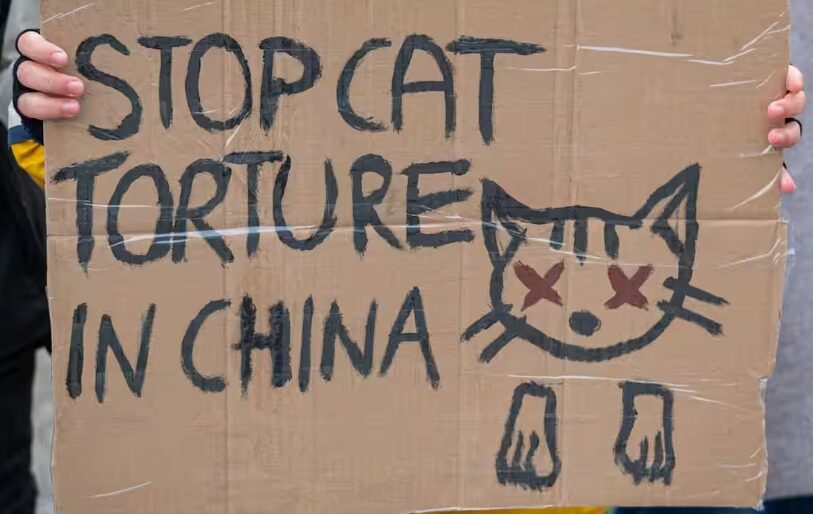 STOP CAT
TORTURE
IN CHINA